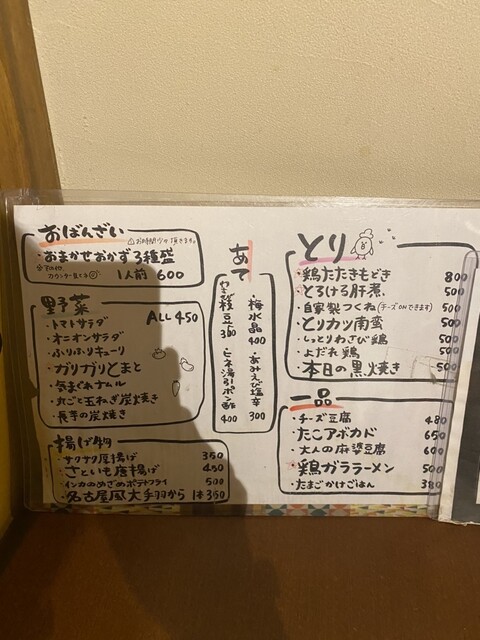 おばんざい
お時間少々頂きます。
・おまかせおかず3種盛
1人前 600
野菜
ALL 450
・トマトサラダ
・オニオンサラダ
・ふりふりキューリ
・ガリガリとまと
・気まぐれナムル
・丸ごと玉ねぎ炭焼き
・長芋の炭焼き
揚げ物
・サクサク厚揚げ 350
・さといも唐揚げ 450
・インカのめざめポテトフライ 500
・名古屋風大手羽から 1本350
あて
・梅水晶 400
・あみえび塩辛 300
枝豆 300
・ヒネ湯引ポン酢 400
とり
・鶏たたきもどき 800
・とろける肝煮 500
・自家製つくね(チーズONできます) 500
・とりカツ南蛮 500
・しっとりわさび鶏 500
・よだれ鶏 500
・本日の黒焼き 500
一品
・チーズ豆腐 480
・たこアボカド 650
・大人の麻婆豆腐 600
・鶏ガララーメン 500
・たまごかけごはん 380